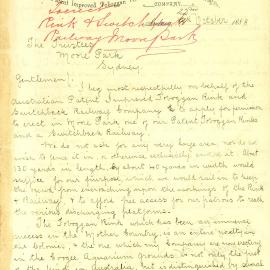 Improved Toboggan
COMPANY
Rink & Switchback
October 1888
Railway Moore Park
The Trustees
Moore Park
Sydney.
Gentlemen!
I beg most respectfully on behalf of the
Australian Patent Improved Toboggan Rink and
Switchback Railway Company to apply for permission
to erect in Moore Park one of our Patent Toboggan Rinks
and a Switchback Railway.
We do not ask for any very large area, nor do we
wish to fence it in, or otherwise enclose it. About
130 yards in length, by about 40 yards in width would
suffice for our purpose, which we would rail in to keep
the crowd from encroaching upon the workings of the Rink
& Railway, & to afford free access for our patrons to reach
the various discharging platforms.
The Toboggan Rink which has been an immense
success in the Mother Country, is an entire novelty in
the Colonies, & the one which my Company are now erecting
in the Coogee Aquarium Grounds, is not only the first
of the kind in Australia, but is distinguished by several